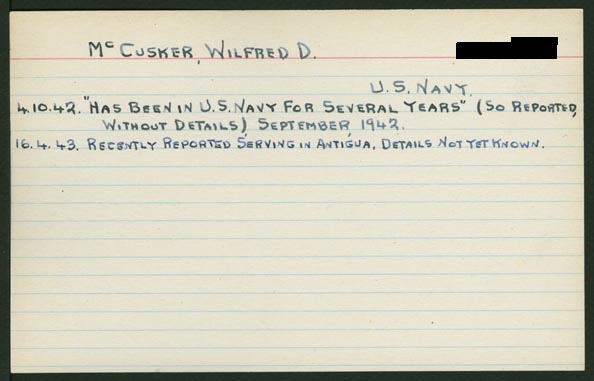 McCusker, Wilfred D.
U.S. Navy.
4.10.42. "Has Been in U.S. Navy For Several Years" (So Reported,
Without Details) September, 1942.
16.4.43. Recently Reported Serving in Antigua, Details Not Yet Known.